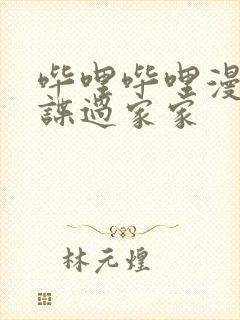 哔哩哔哩漫
谋过家家
林元煌